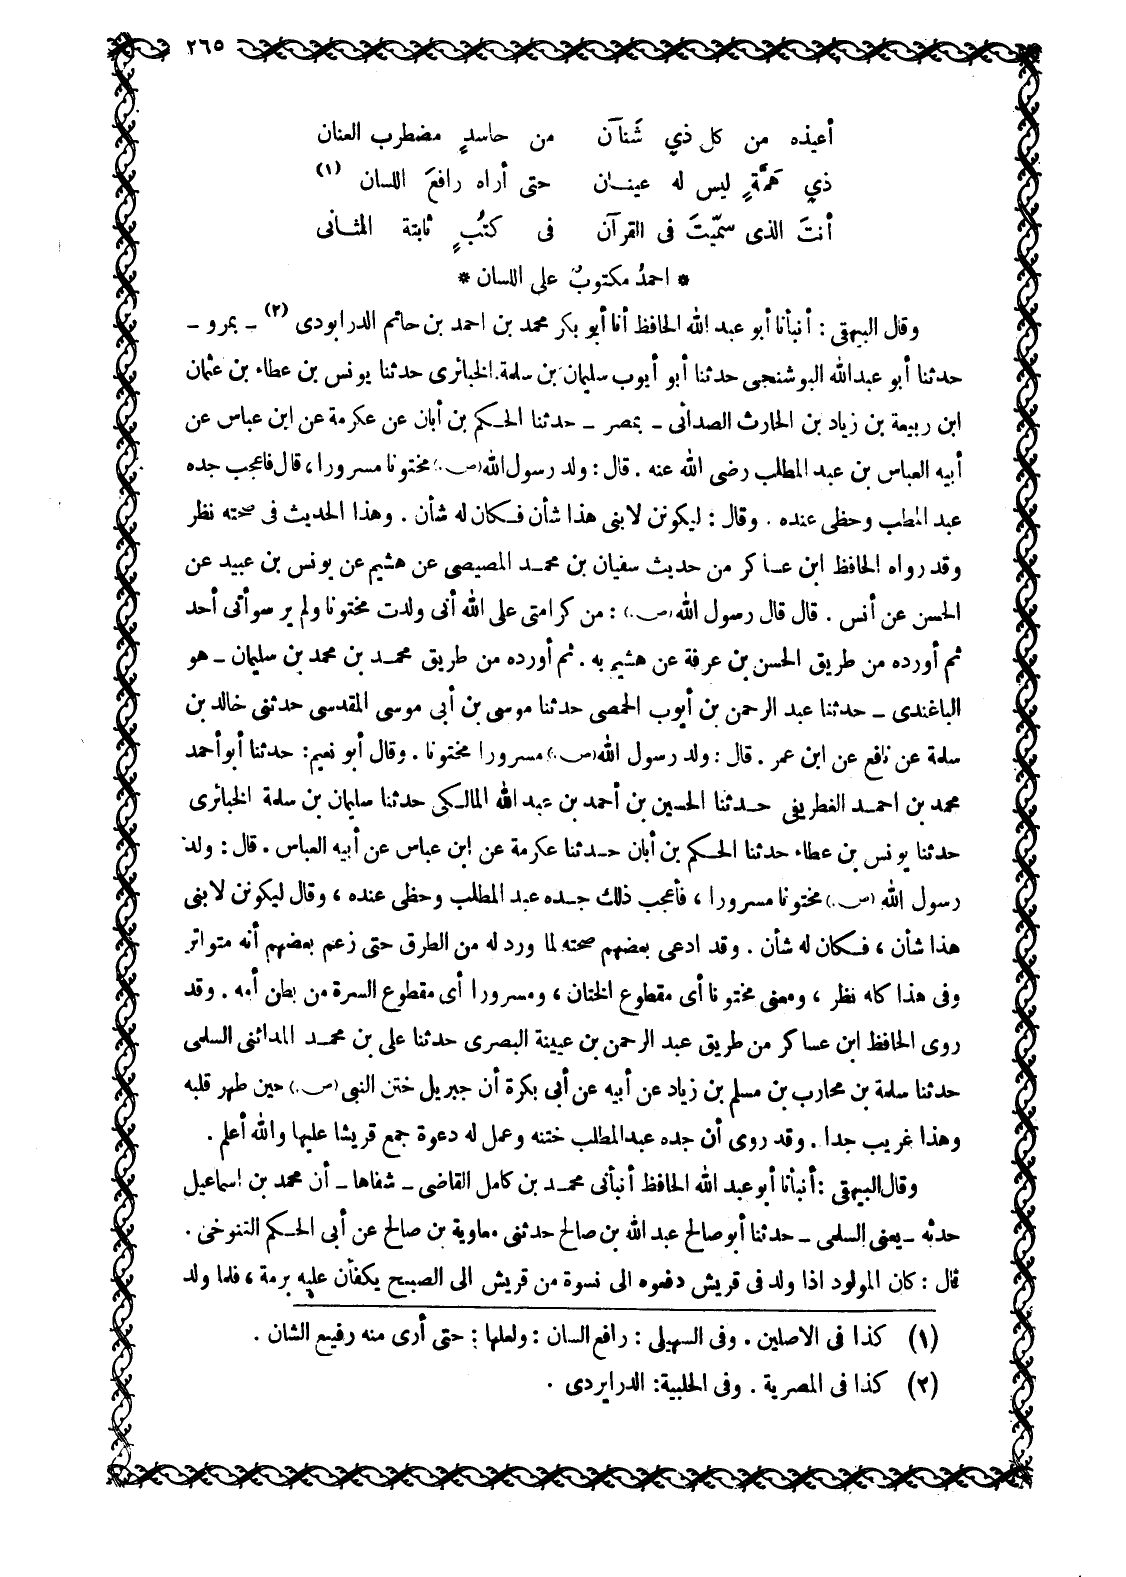 ٢٦٥
أعيذه من كل ذي شَنآن من حاسدٍ مضطرب العنان
ذي همَّةٍ ليس له عينــان حتى أراه رافعَ اللسان (١)
أنتَ الذى سمّيتَ فى القرآن فى كتُبٍ ثابتة المثانى
* احمدُ مكتوبٌ على اللسان *
وقال البيهقى : أنبأنا أبو عبد الله الحافظ أنا أبو بكر محمد بن احمد بن حاتم الدرابودى (٢) ـ بمرو ـ
حدثنا أبو عبدالله البوشنجى حدثنا أبو أيوب سليمان بن سلمة الخبائرى حدثنا يونس بن عطاء بن عثمان
ابن ربيعة بن زياد بن الحارث الصدائى ـ بمصر ـ حدثنا الحـكم بن أبان عن عكرمة عن ابن عباس عن
أبيه العباس بن عبد المطلب رضى الله عنه . قال : ولد رسول الله (ص.) مختونا مسرورا ، قال فاعجب جده
عبد المطلب وحظى عنده . وقال : ليكونن لابنى هذا شأن فـكان له شأن . وهذا الحديث فى صحته نظر
وقد رواه الحافظ ابن عساكر من حديث سفيان بن محمـد المصيصى عن هشيم عن يونس بن عبيد عن
الحسن عن أنس . قال قال رسول الله (ص.) : من كرامتى على الله أنى ولدت مختونا ولم ير سوأتى أحد
ثم أورده من طريق الحسن بن عرفة عن هشيم به . ثم أورده من طريق محمـد بن محمد بن سليمان ـ هو
الباغندى ـ حدثنا عبد الرحمن بن أيوب الحمصى حدثنا موسى بن أبى موسى المقدسى حدثنى خالد بن
سلمة عن نافع عن ابن عمر . قال : ولد رسول الله (ص.) مسرورا مختونا . وقال أبو نعيم : حدثنا أبو أحمد
محمد بن احمـد الغطريفى حـدثنا الحسين بن أحمد بن عبد الله المالـكى حدثنا سليمان بن سلمة الخبائرى
حدثنا يونس بن عطاء حدثنا الحـكم بن أبان حـدثنا عكرمة عن ابن عباس عن أبيه العباس . قال : ولد
رسول الله (ص.) مختونا مسرورا ، فأعجب ذلك جـده عبد المطلب وحظى عنده ، وقال ليكونن لابنى
هذا شأن ، فـكان له شأن . وقد ادعى بعضهم صحته لما ورد له من الطرق حتى زعم بعضهم أنه متواتر
وفى هذا كله نظر ، ومعنى مختونا أى مقطوع الختان ، ومسرورا أى مقطوع السرة من بطن أمه . وقد
روى الحافظ ابن عساكر من طريق عبد الرحمن بن عيينة البصرى حدثنا على بن محمـد المدائنى السلمى
حدثنا سلمة بن محارب بن مسلم بن زياد عن أبيه عن أبى بكرة أن جبريل ختن النبى (ص.) حين طهر قلبه
وهذا غريب جدا . وقد روى أن جده عبدالمطلب ختنه وعمل له دعوة جمع قريشا عليها والله أعلم .
وقال البيهقى : أنبأنا أبو عبد الله الحافظ أنبأنى محمـد بن كامل القاضى ـ شفاها ـ أن محمد بن اسماعيل
حدثه ـ يعنى السلمى ـ حدثنا أبو صالح عبد الله بن صالح حدثنى معاوية بن صالح عن أبى الحـكم التنوخى .
قال : كان المولود اذا ولد فى قريش دفعوه الى نسوة من قريش الى الصبح يكفأن عليه برمة ، فلما ولد
(١) كذا فى الاصلين . وفى السهيلى : رافع السان : ولعلها : حتى أرى منه رفيع الشان .
(٢) كذا فى المصرية . وفى الحلبية : الدرابردى .